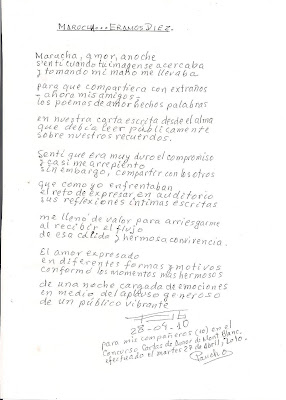 MAROCHA... ERAMOS DIEZ.
Marocha, amor, anoche
sentí cuando tu imagen se acercaba
y tomando mi mano me llevaba
para que compartiera con extraños
- ahora mis amigos -
los poemas de amor hechos palabras
en nuestra carta escrita desde el alma
que debía leer públicamente
sobre nuestros recuerdos.
Sentí que era muy duro el compromiso
y casi me arrepiento
sin embargo, compartir con los otros
que como yo enfrentaban
el reto de expresar en auditorio
sus reflexiones íntimas escritas
me llenó de valor para arriesgarme
al recibir el flujo
de esa cálida y hermosa convivencia.
El amor expresado
en diferentes formas y motivos
conformó los momentos más hermosos
de una noche cargada de emociones
en medio del aplauso generoso
de un público vibrante
28-04-10
para mis compañeros (10) en el
Concurso Cartas de Amor de Mont Blanc,
efectuado el martes 27 de Abril, 2010.
Pancho